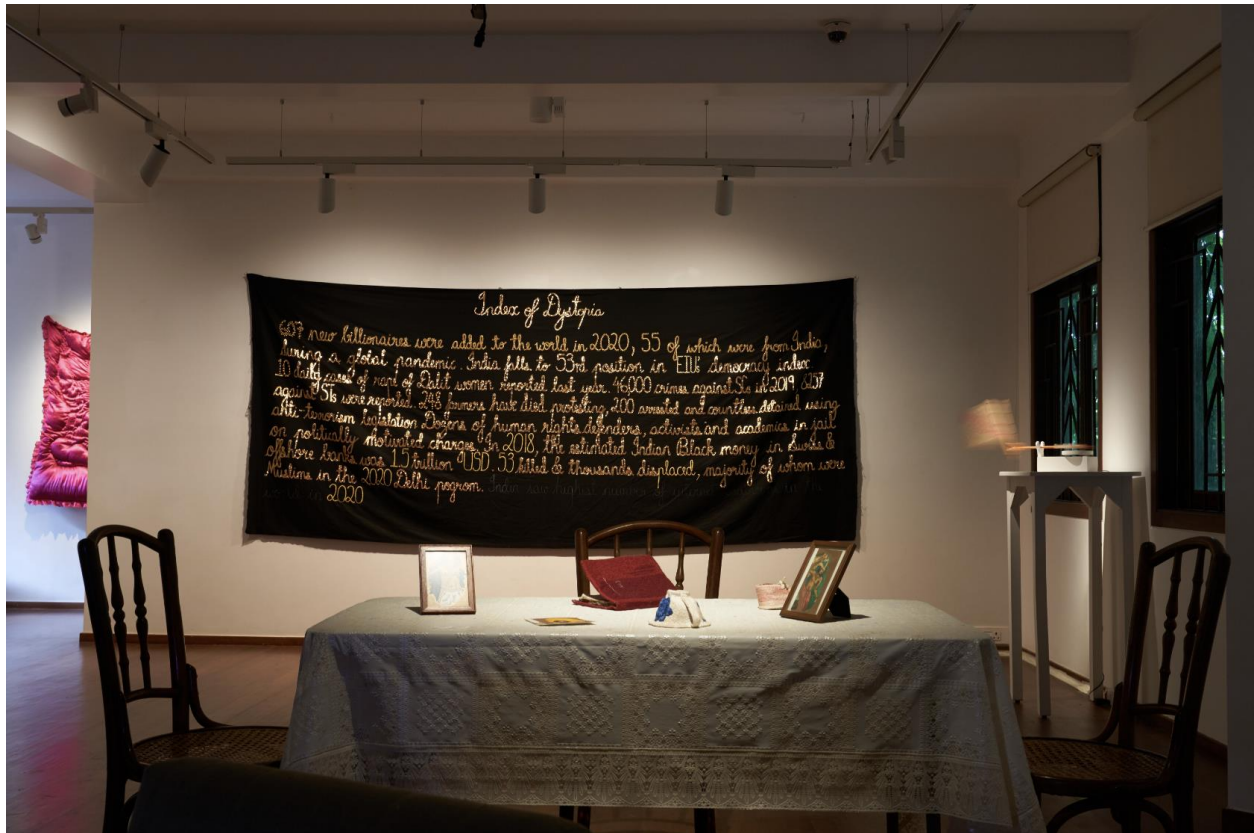 Index of Dystopia
607 new billionaires were added to the world in 2020, 55 of which were from India,
during a global pandemic. India falls to 53rd position in EIU's democracy index
10 daily cases of rape of Dalit women reported last year. 46,000 crimes against SCs in 2019 & 8257
against STs were reported. 248 farmers have died protesting, 200 arrested and countless detained using
anti-terrorism legislation Dozens of human rights defenders, activists and academics in jail
on politically motivated charges. In 2018, the estimated Indian Black money in Swiss &
offshore banks was 1.5 trillion USD. 53 killed & thousands displaced, majority of whom were
Muslims in the 2020 Delhi pogrom. India saw highest number of internet
2020